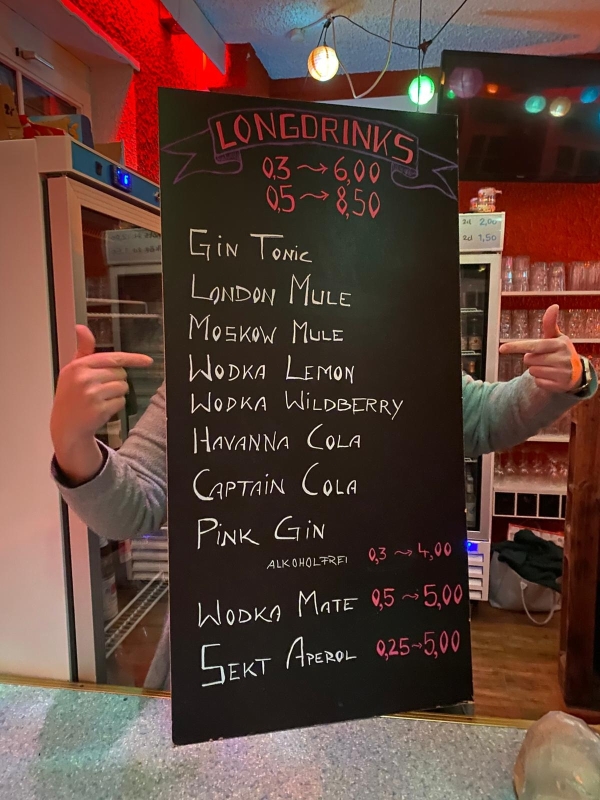 LONGDRINKS
0,3 → 6,00
0,5 → 8,50
GIN TONIC
LONDON MULE
MOSKOW MULE
WODKA LEMON
WODKA WILDBERRY
HAVANNA COLA
CAPTAIN COLA
PINK GIN
ALKOHOLFREI 0,3 → 4,00
WODKA MATE 0,5 → 5,00
SEKT APEROL 0,25 → 5,00
2cl 2,00
2cl 1,50